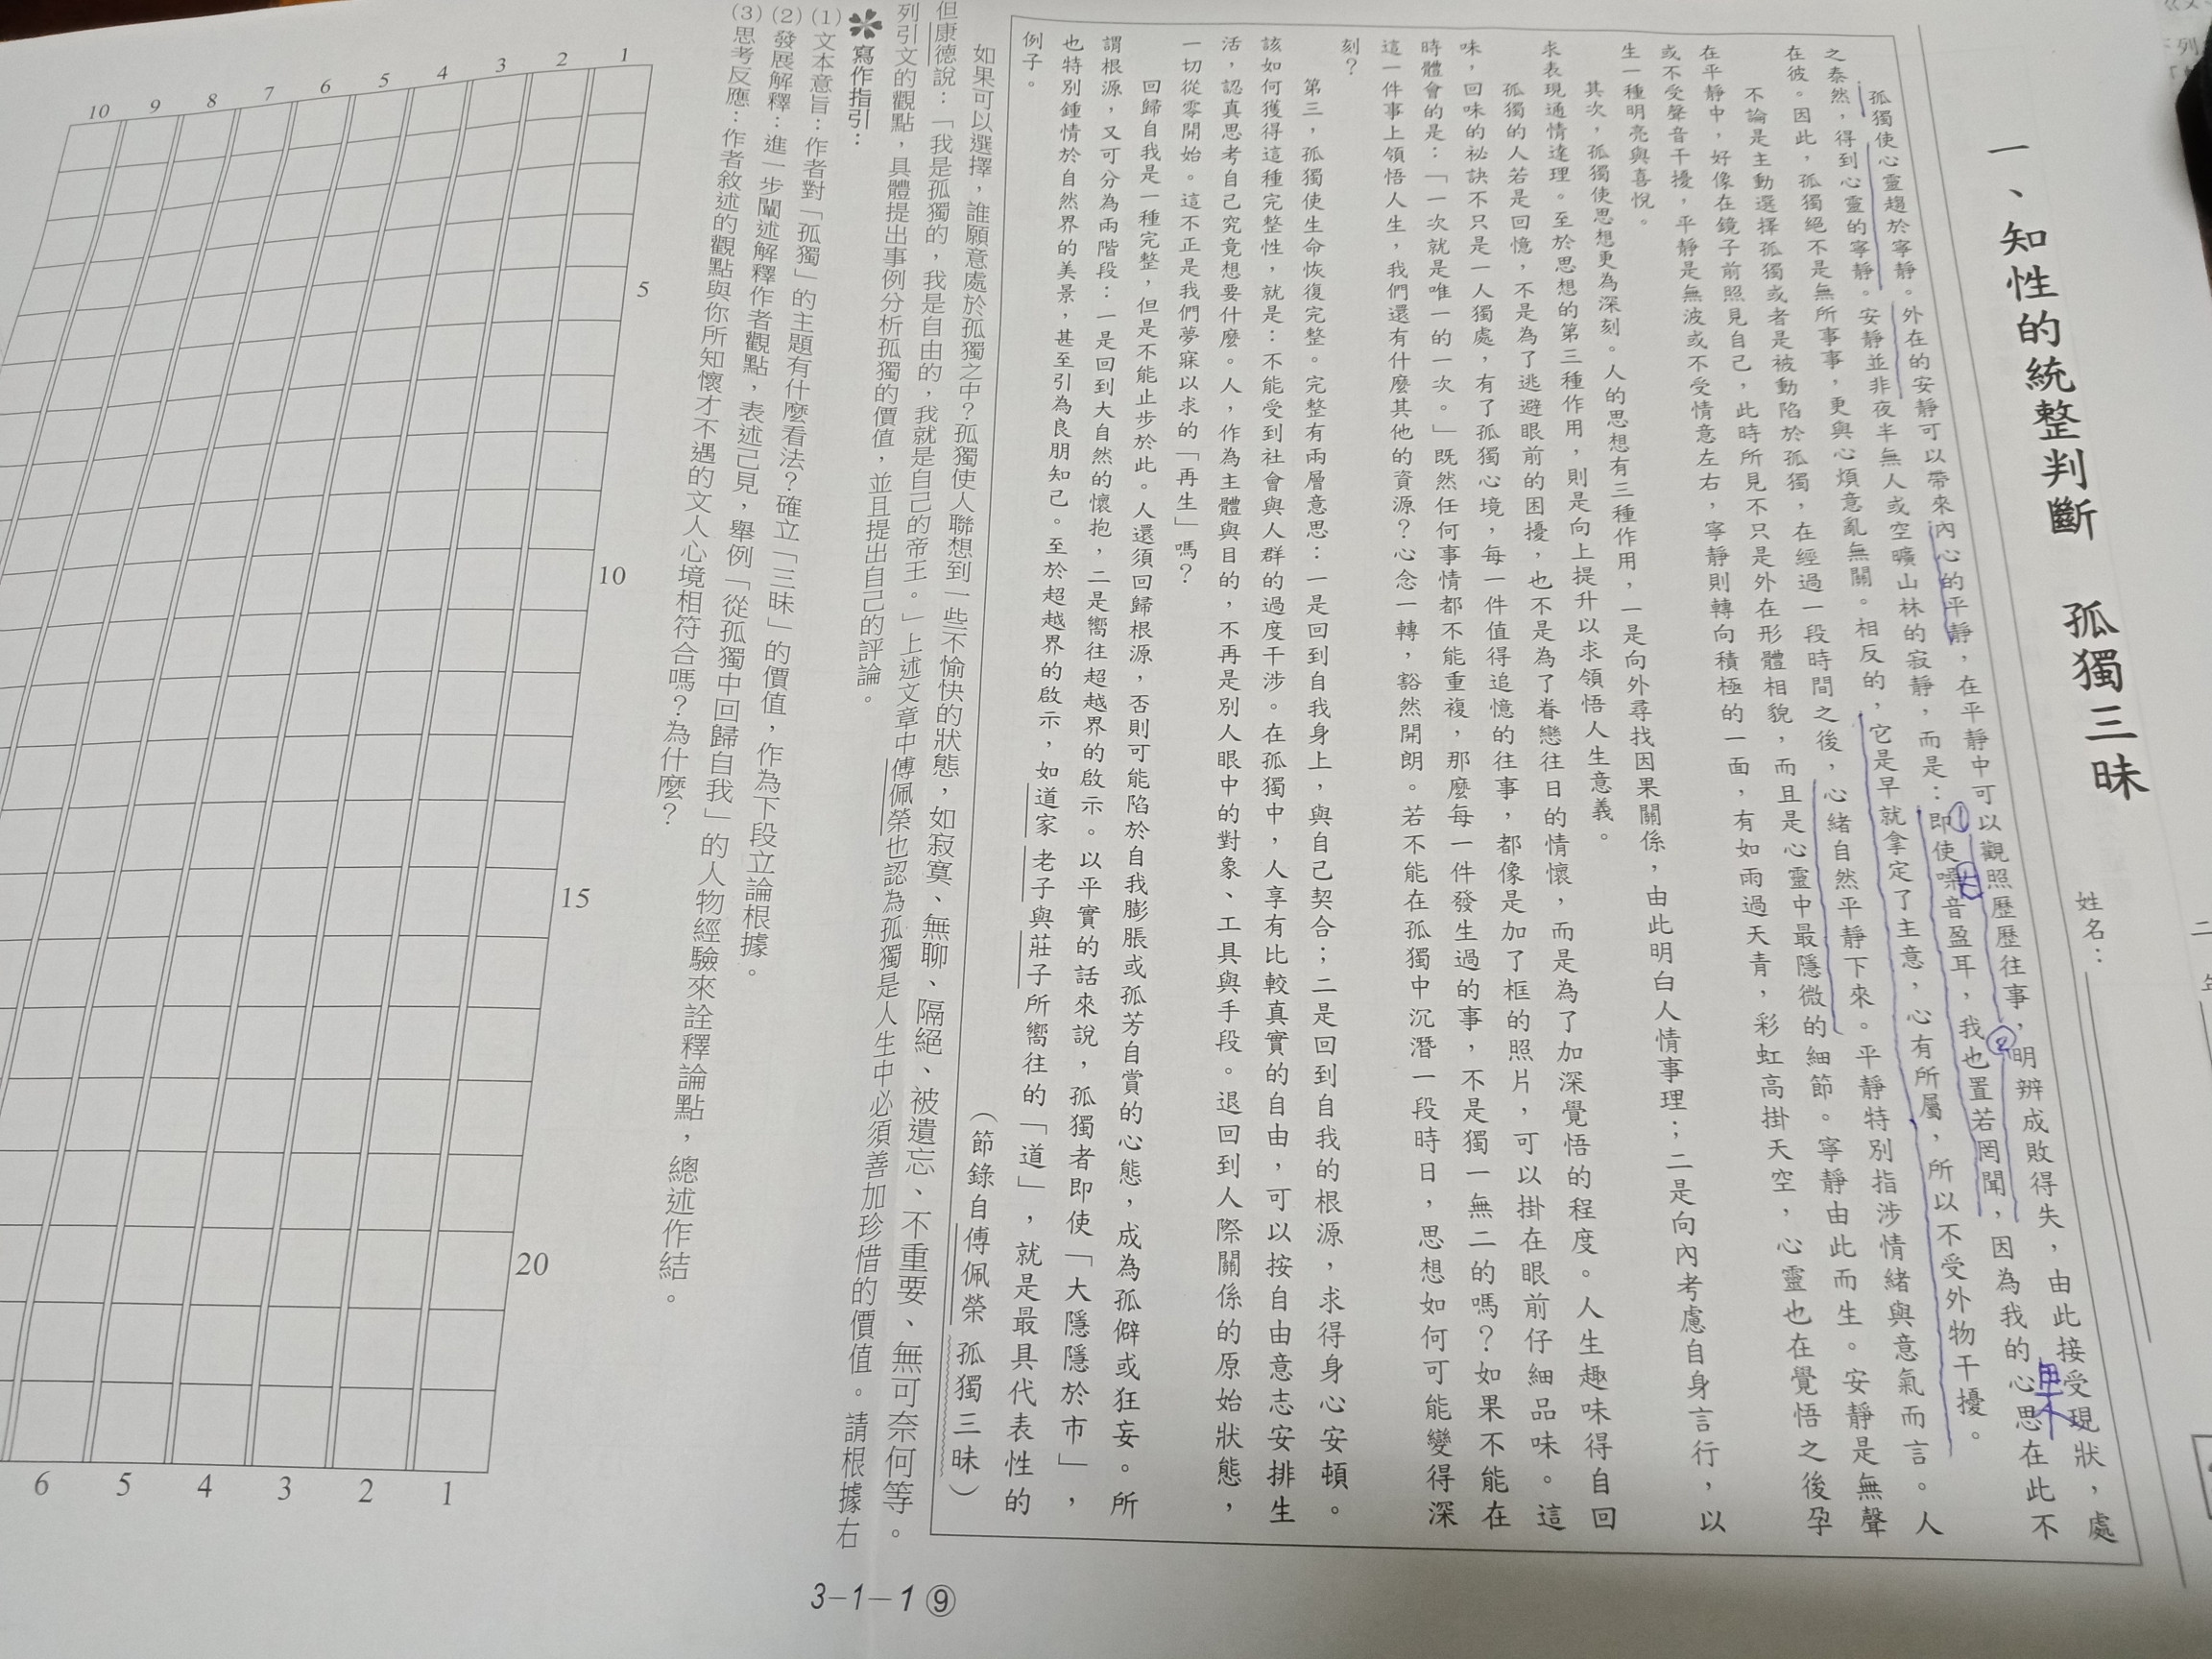 一、知性的統整判斷　孤獨三昧　姓名：
孤獨使心靈趨於寧靜。外在的安靜可以帶來內心的平靜，在平靜中可以觀照歷歷往事，明辨成敗得失，由此接受現狀，處
之泰然，得到心靈的寧靜。安靜並非夜半無人或空曠山林的寂靜，而是：即使噪音盈耳，我也置若罔聞，因為我的心思在此不
在彼。因此，孤獨絕不是無所事事，更與心煩意亂無關。相反的，它是早就拿定了主意，心有所屬，所以不受外物干擾。
不論是主動選擇孤獨或者是被動陷於孤獨，在經過一段時間之後，心緒自然平靜下來。平靜特別指涉情緒與意氣而言。人
在平靜中，好像在鏡子前照見自己，此時所見不只是外在形體相貌，而且是心靈中最隱微的細節。寧靜由此而生。安靜是無聲
或不受聲音干擾，平靜是無波或不受情意左右，寧靜則轉向積極的一面，有如雨過天青，彩虹高掛天空，心靈也在覺悟之後孕
生一種明亮與喜悅。
其次，孤獨使思想更為深刻。人的思想有三種作用，一是向外尋找因果關係，由此明白人情事理；二是向內考慮自身言行，以
求表現通情達理。至於思想的第三種作用，則是向上提升以求領悟人生意義。
孤獨的人若是回憶，不是為了逃避眼前的困擾，也不是為了眷戀往日的情懷，而是為了加深覺悟的程度。人生趣味得自回
味，回味的祕訣不只是一人獨處，有了孤獨心境，每一件值得追憶的往事，都像是加了框的照片，可以掛在眼前仔細品味。這
時體會的是：「一次就是唯一的一次。」既然任何事情都不能重複，那麼每一件發生過的事，不是獨一無二的嗎？如果不能在
這一件事上領悟人生，我們還有什麼其他的資源？心念一轉，豁然開朗。若不能在孤獨中沉潛一段時日，思想如何可能變得深
刻？
第三，孤獨使生命恢復完整。完整有兩層意思：一是回到自我身上，與自己契合；二是回到自我的根源，求得身心安頓。
該如何獲得這種完整性，就是：不能受到社會與人群的過度干涉。在孤獨中，人享有比較真實的自由，可以按自由意志安排生
活，認真思考自己究竟想要什麼。人，作為主體與目的，不再是別人眼中的對象、工具與手段。退回到人際關係的原始狀態，
一切從零開始。這不正是我們夢寐以求的「再生」嗎？
回歸自我是一種完整，但是不能止步於此。人還須回歸根源，否則可能陷於自我膨脹或孤芳自賞的心態，成為孤僻或狂妄。所
謂根源，又可分為兩階段：一是回到大自然的懷抱，二是嚮往超越界的啟示。以平實的話來說，孤獨者即使「大隱隱於市」，
也特別鍾情於自然界的美景，甚至引為良朋知己。至於超越界的啟示，如道家老子與莊子所嚮往的「道」，就是最具代表性的
例子。
（節錄自傅佩榮 孤獨三昧）
如果可以選擇，誰願意處於孤獨之中？孤獨使人聯想到一些不愉快的狀態，如寂寞、無聊、隔絕、被遺忘、不重要、無可奈何等。
但康德說：「我是孤獨的，我是自由的，我就是自己的帝王。」上述文章中傅佩榮也認為孤獨是人生中必須善加珍惜的價值。請根據右
列引文的觀點，具體提出事例分析孤獨的價值，並且提出自己的評論。
寫作指引：
(1)文本意旨：作者對「孤獨」的主題有什麼看法？確立「三昧」的價值，作為下段立論根據。
(2)發展解釋：進一步闡述解釋作者觀點，表述己見，舉例「從孤獨中回歸自我」的人物經驗來詮釋論點，總述作結。
(3)思考反應：作者敘述的觀點與你所知懷才不遇的文人心境相符合嗎？為什麼？
1 2 3 4 5 6 7 8 9 10
5
10
15
20
1 2 3 4 5 6
3-1-1⑨